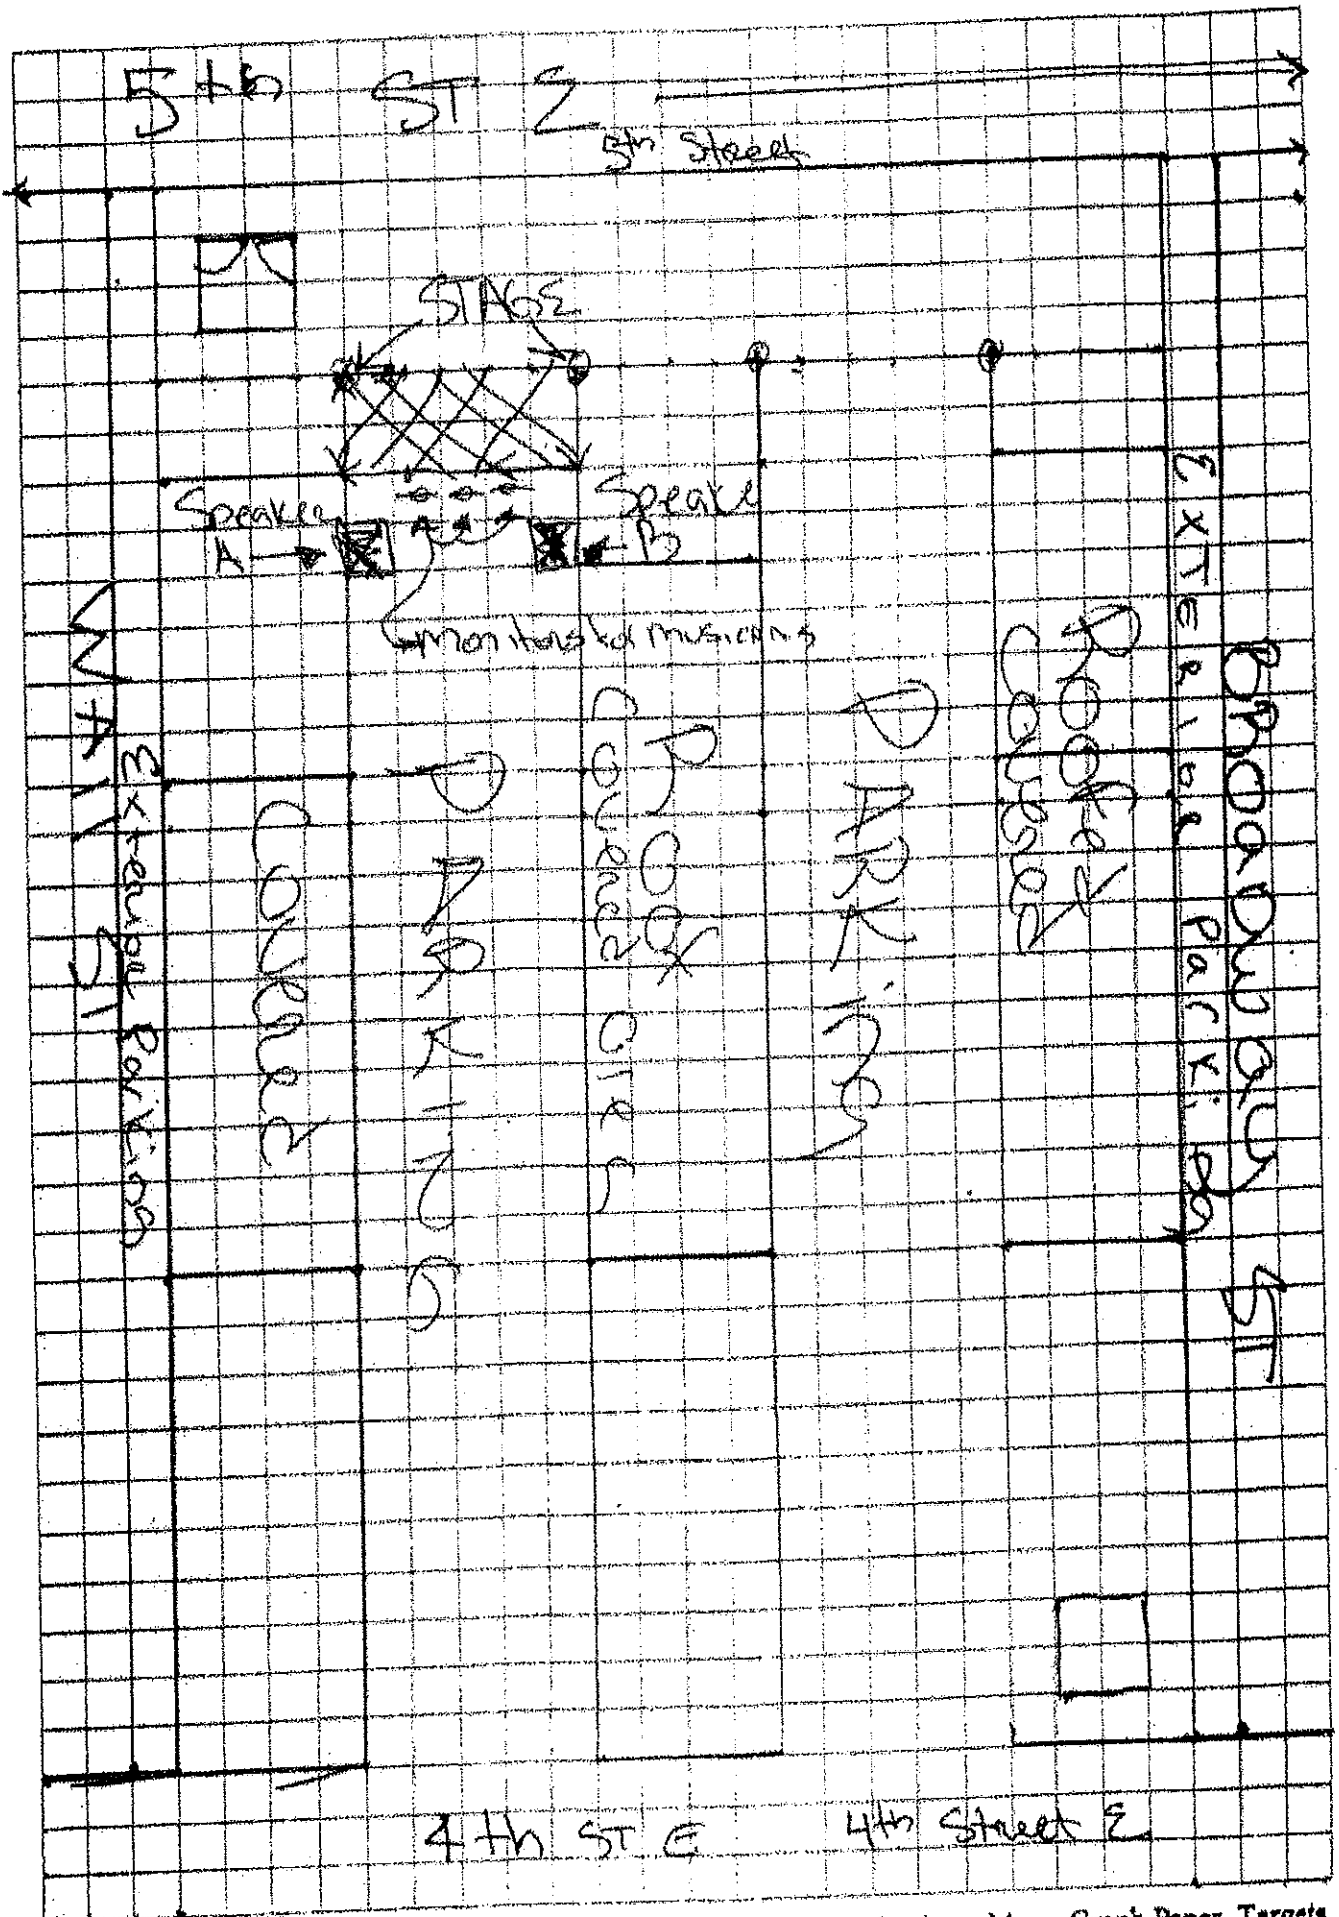 5th ST E
5th Street
STAGE
Speaker
A
Speake
B
Monitors for Musicians
MAIN ST
Exterior Parking
Covered
PARKING
Roof
Covered Cars
PARKING
Roof
Covered
EXTERIOR Parking
BROADWAY ST
4th ST E
4th Street E
Graph Paper Targets